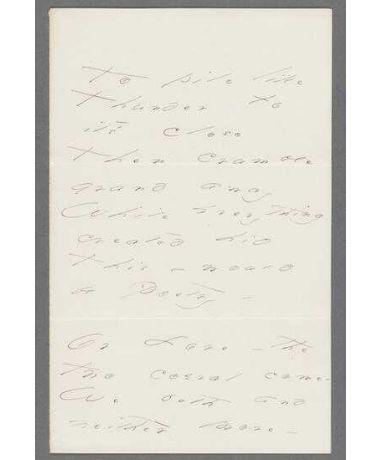 To pile like
Thunder to
its close
Then crumble
grand away
While everything
created hid
This – would
be Poetry –
Or Love – the
two coeval come –
We both and
neither prove –